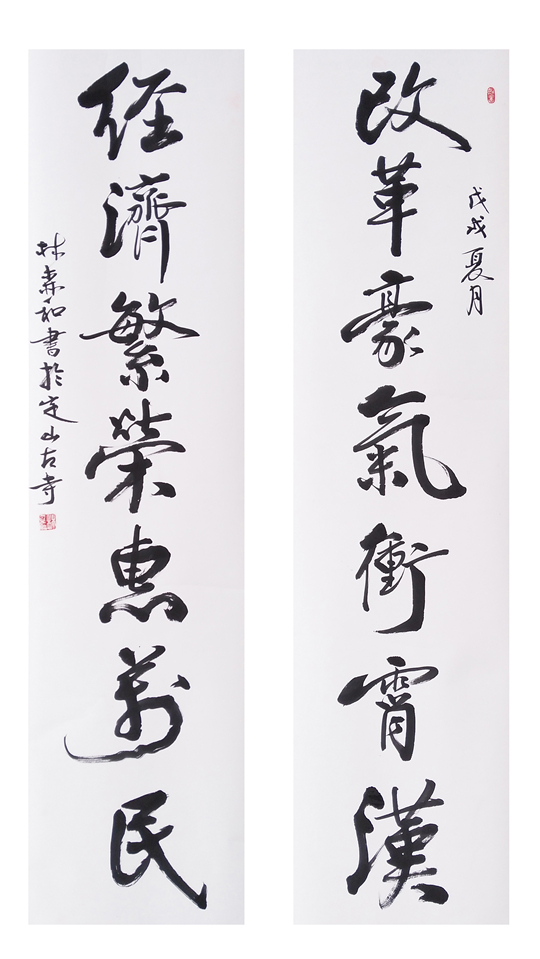 戊戌夏月
改革豪氣衝霄漢
經濟繁榮惠萬民
林森和書於定山古寺